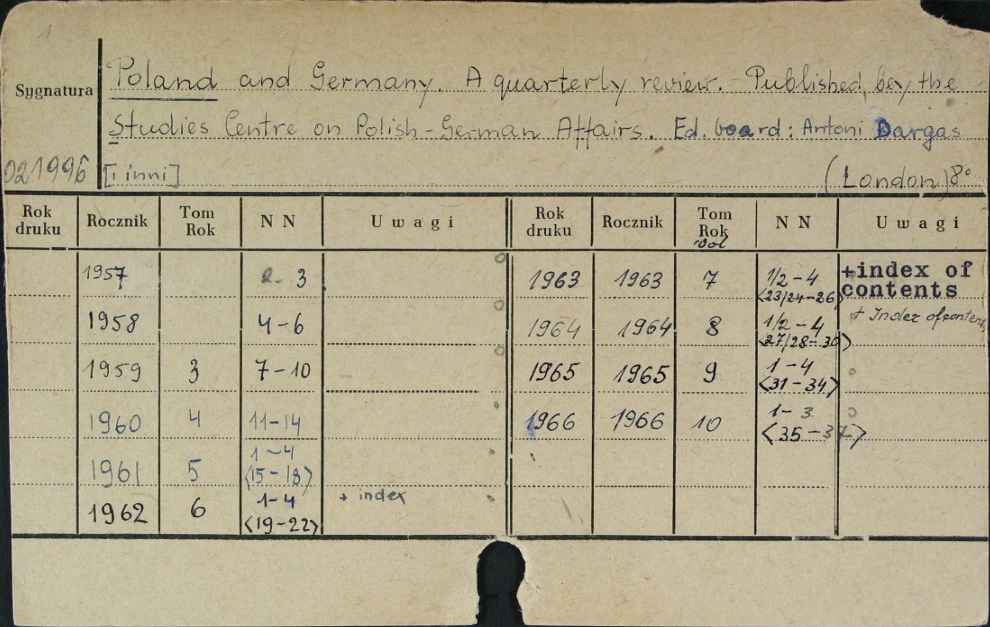 1
Poland and Germany. A quarterly review. - Published by the
Sygnatura
Studies Centre on Polish-German Affairs. Ed. board: Antoni Dargas
021996 [i inni] (London) 8°
Rok druku Rocznik Tom Rok NN Uwagi Rok druku Rocznik Tom Rok Vol NN Uwagi
1957 2-3 1963 1963 7 1/2-4 <23/24-26> +index of contents
1958 4-6 1964 1964 8 1/2-4 <27/28-30> + Index of contents
1959 3 7-10 1965 1965 9 1-4 <31-34>
1960 4 11-14 1966 1966 10 1-3 <35-37>
1961 5 1-4 <15-18>
1962 6 1-4 <19-22> + index